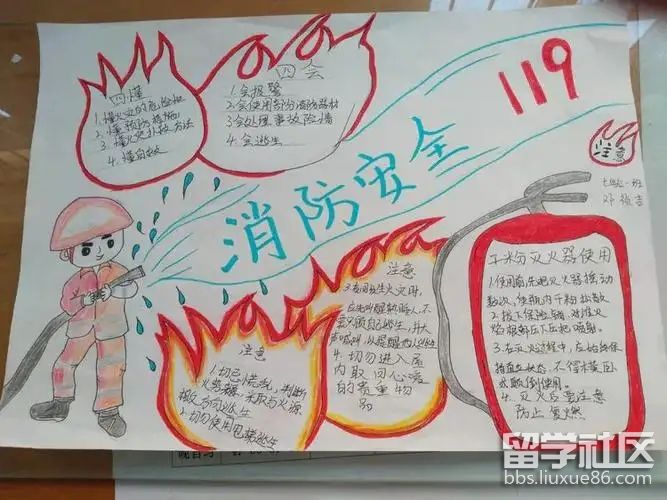 四懂
1.懂火灾的危险性
2.懂预防措施
3.懂火灾扑救方法
4.懂自救
四会
1.会报警
2.会使用部份消防器材
3.会处理事故险情
4.会逃生
119
注意
消防安全
注意
1.切忌慌乱,判断
火势来源,采取与火源
相反方向逃生
2.切勿使用电梯逃生
注意
3.夜间发生火灾时,
应先叫醒熟睡人,不
要只顾自己逃生,并大
声喊叫,以提醒他人逃生
4.切勿进入屋
内取回心爱
的贵重物
品
干粉灭火器使用
1.使用前先把灭火器摇动
数次,使瓶内干粉松散
2.拔下保险销,对准火
焰根部压下压把喷射。
3.在灭火过程中,应始终保
持直立状态,不得横卧
或颠倒使用。
4.灭火后要注意
防止复燃
留学社区
bbs.liuxue86.com